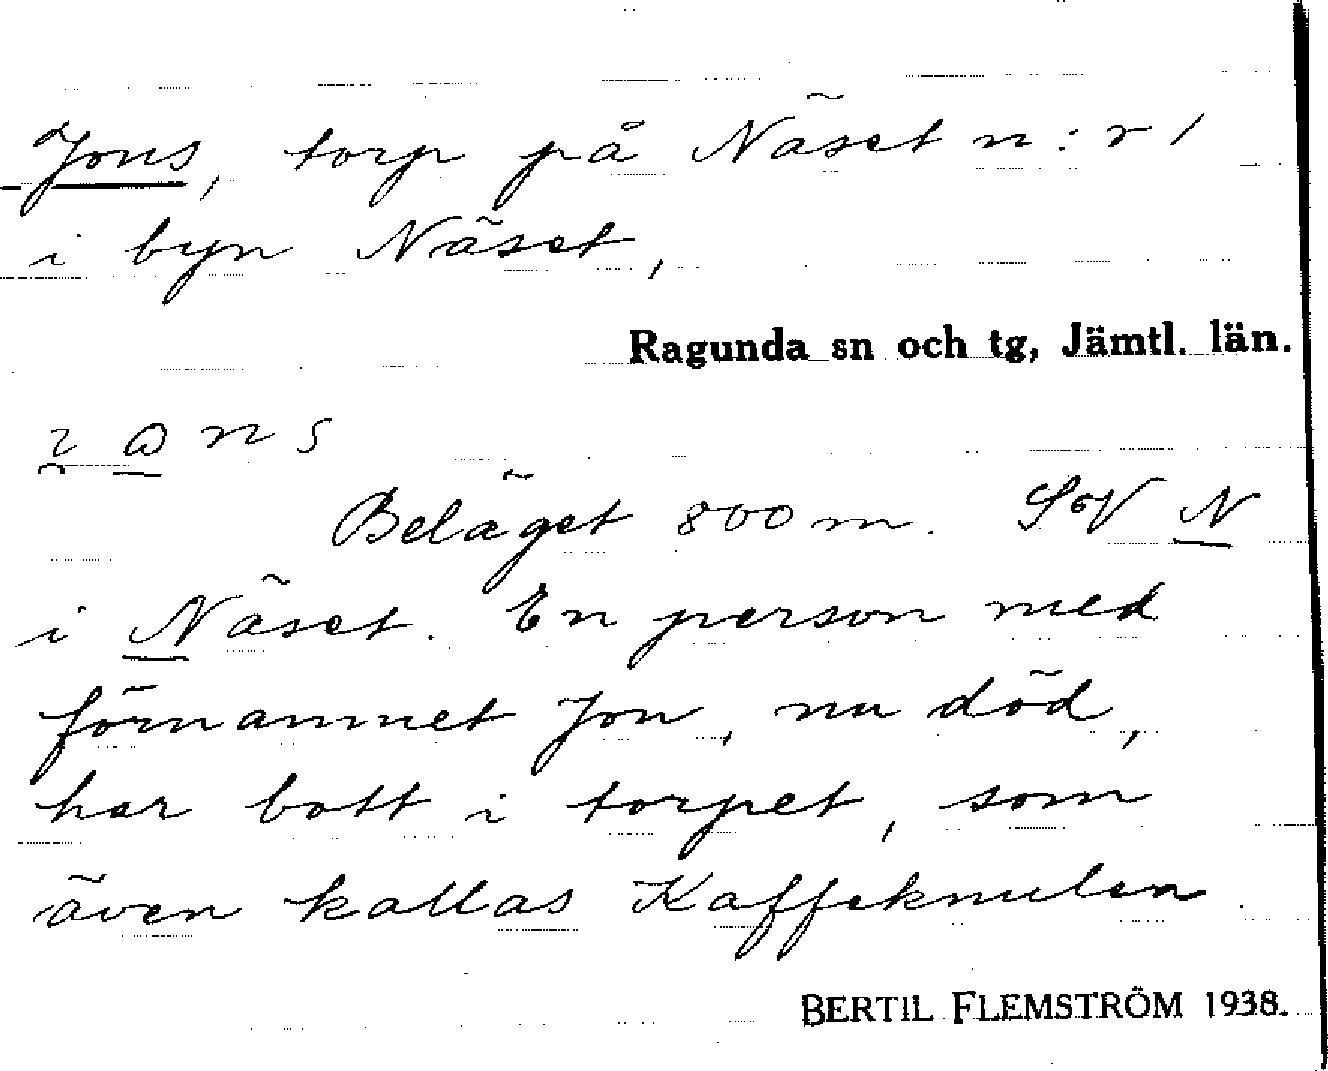 Jons, torp på Näset n:r 1
i byn Näset,
Ragunda sn och tg, Jämtl. län.
Beläget 800 m. SV N
i Näset. En person med
förnamnet Jon, nu död,
har bott i torpet, som
även kallas Kaffeknulen
BERTIL FLEMSTRÖM 1938.